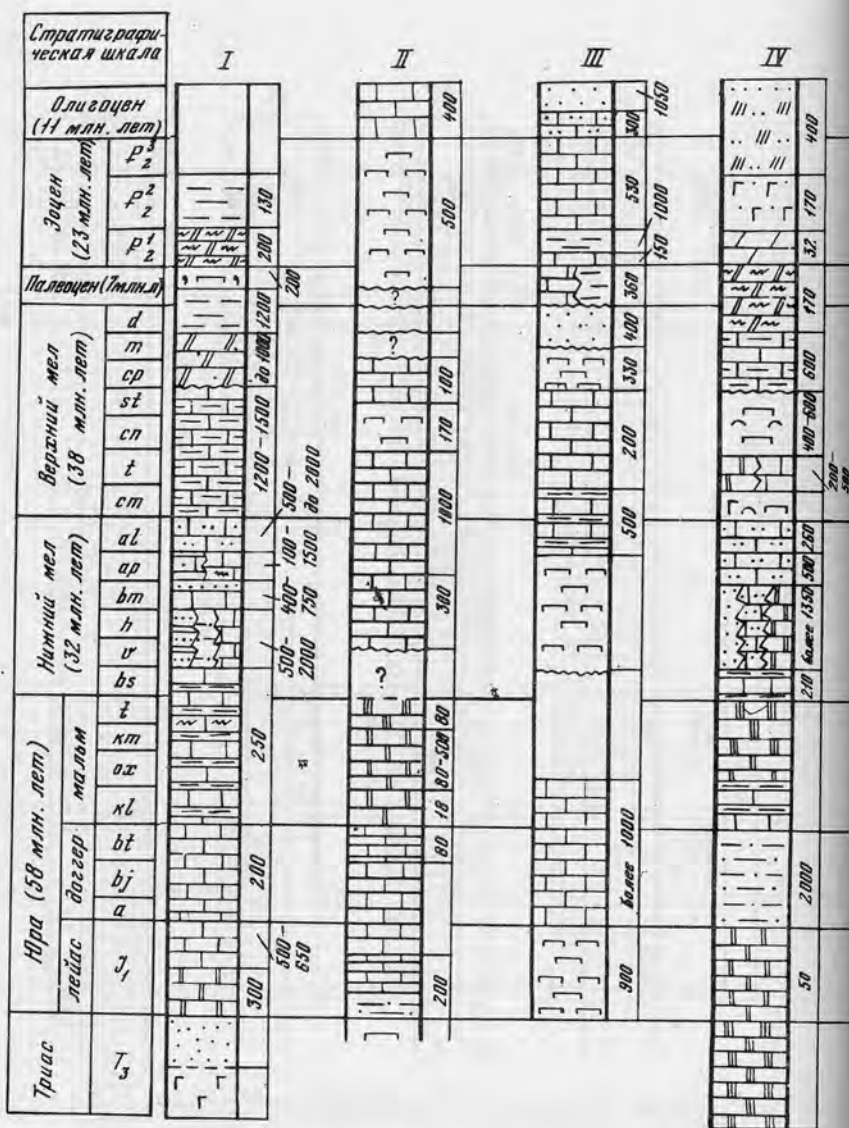 Стратиграфи-
ческая шкала
I
II
III
IV
Олигоцен
(11 млн. лет)
Эоцен
(23 млн. лет)
P₂³
P₂²
P₂¹
Палеоцен (7млн.л)
Верхний мел
(38 млн. лет)
d
m
cp
st
cn
t
cm
Нижний мел
(32 млн. лет)
al
ap
bm
h
v
bs
Юра (58 млн. лет)
мальм
t
км
ox
кl
доггер
bt
bj
a
лейас
J₁
Триас
T₃
130
200
200
1200
до 1000
1200-1500
500-
до 2000
100-
1500
400-
750
500-
2000
250
200
500-
650
300
400
500
?
?
100
170
1000
300
?
80
80-500
18
80
200
1050
300
530
150-1000
360
400
330
200
500
более 1000
900
400
170
32
170
600
400-600
200-
500
260
500
более 1350
210
2000
50